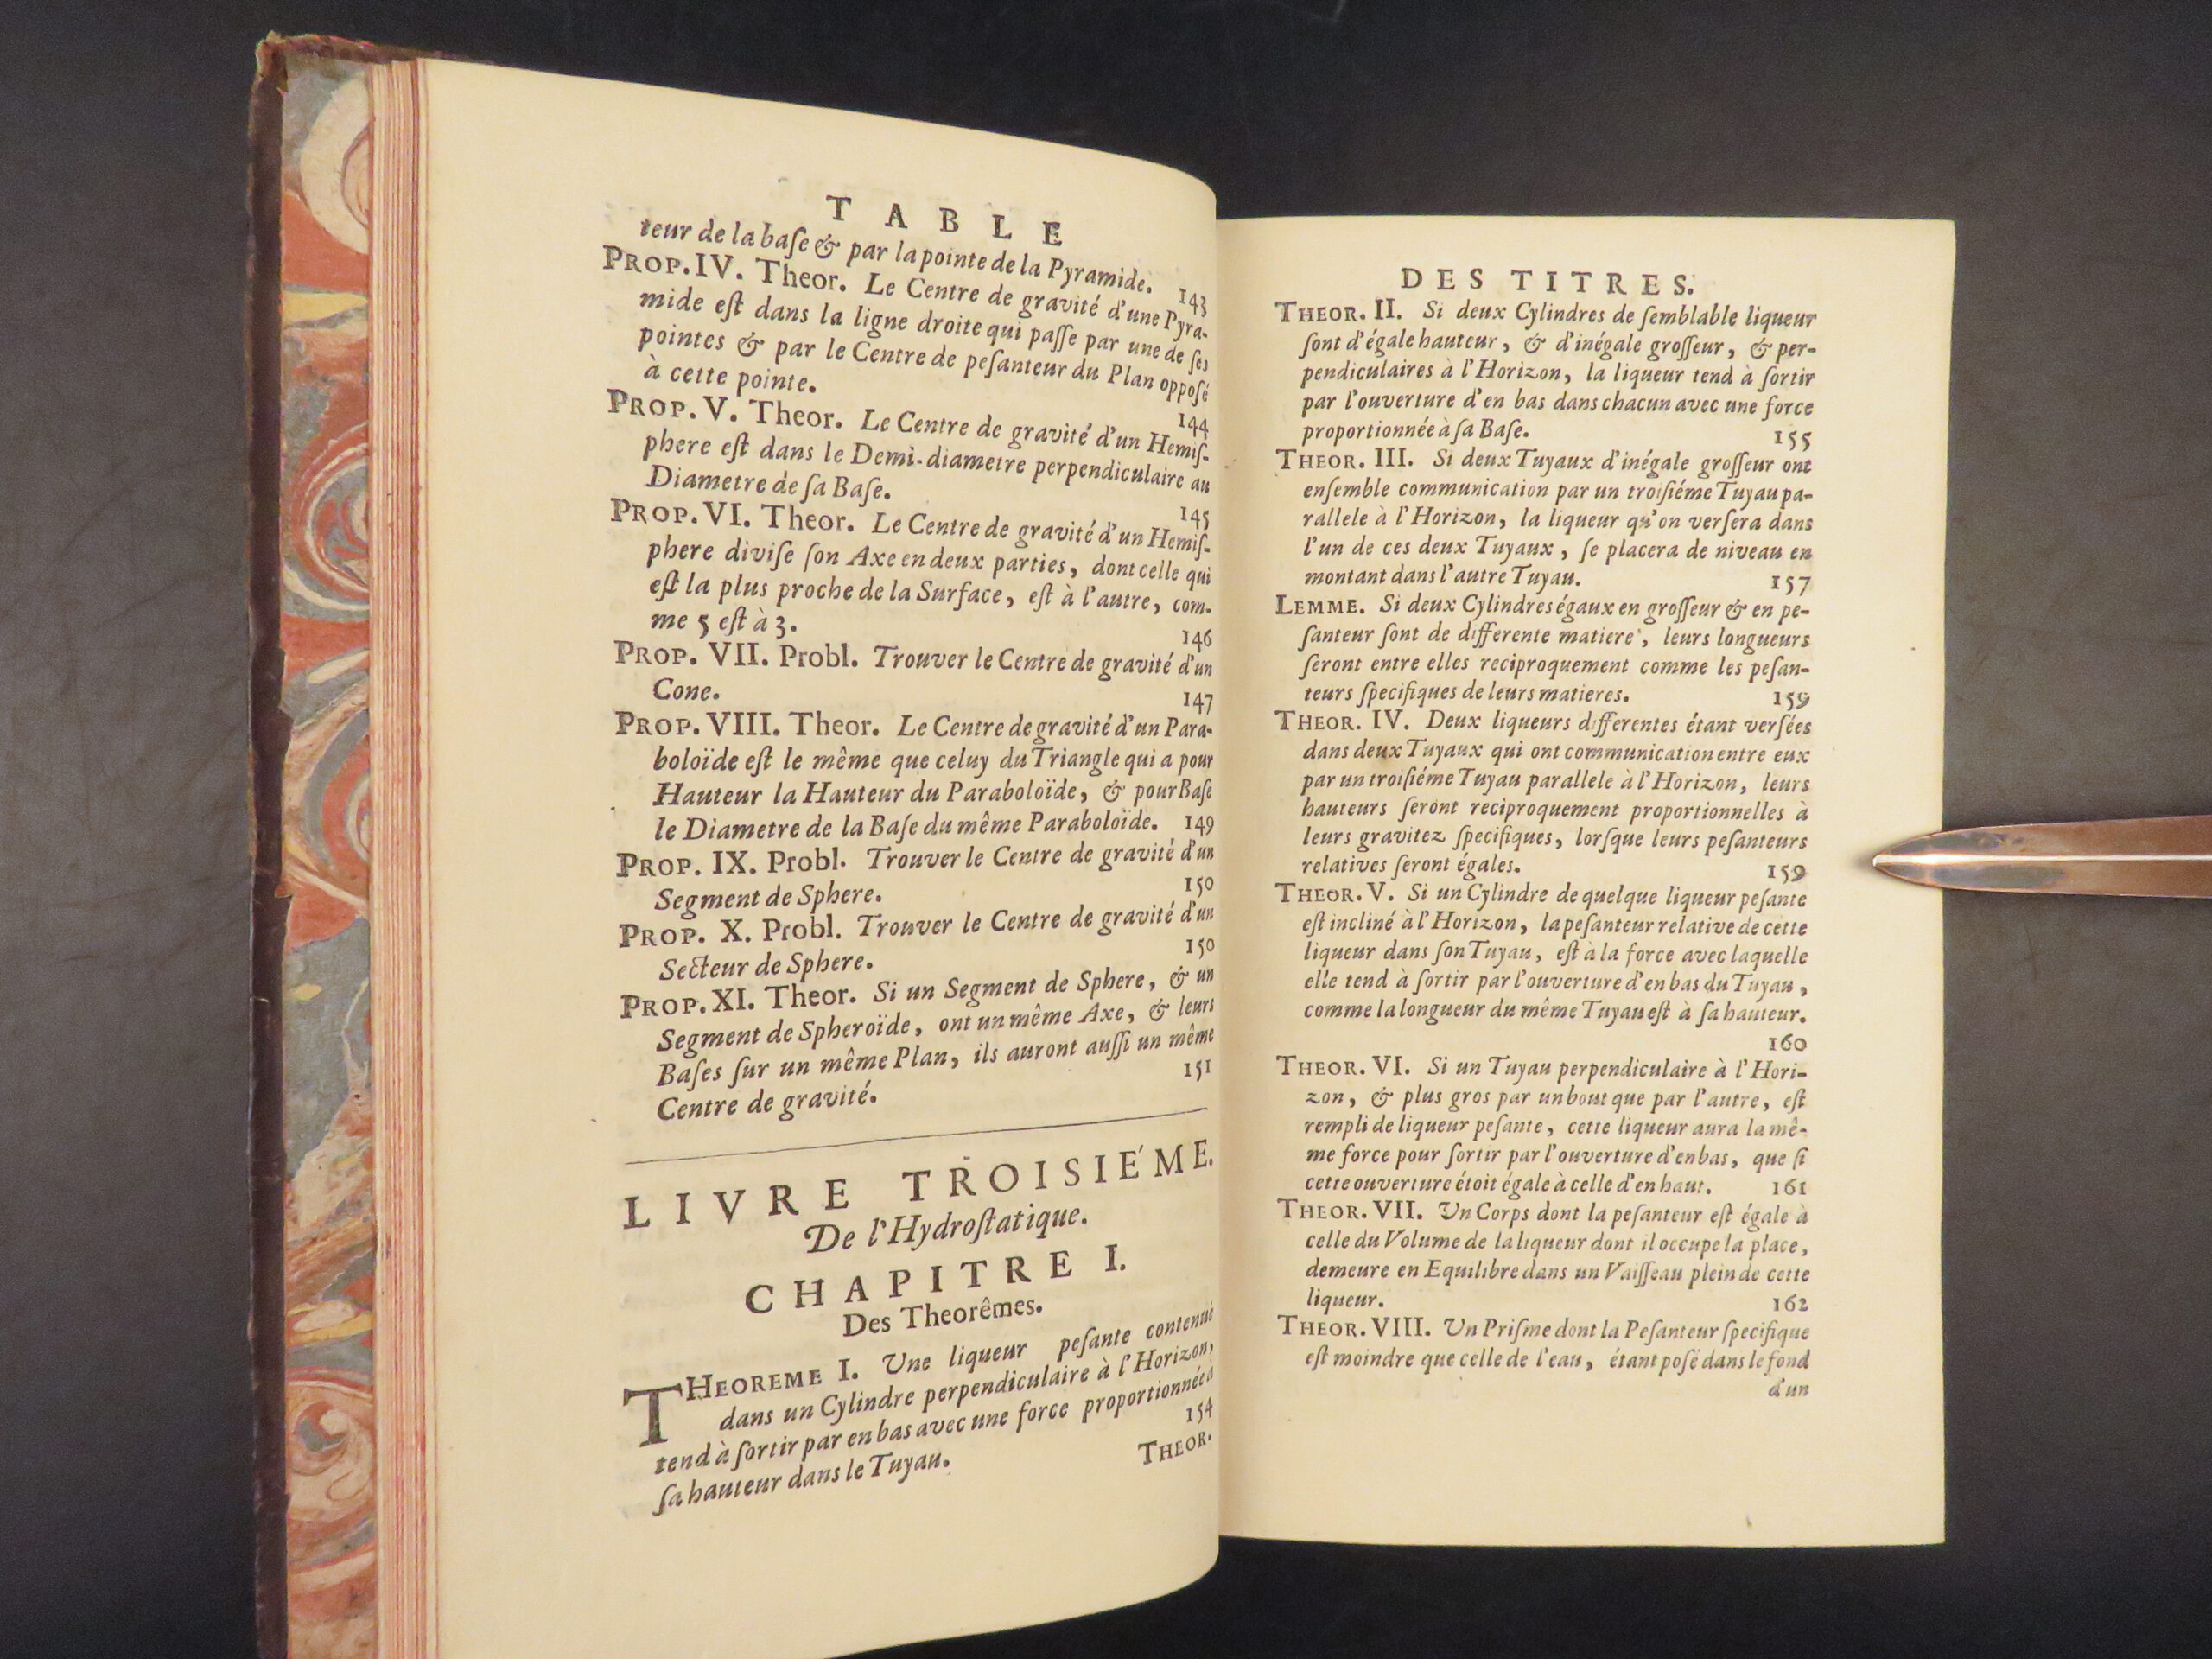 TABLE
teur de la baſe & par la pointe de la Pyramide. 143
PROP. IV. Theor. Le Centre de gravité d'une Pyra-
mide eſt dans la ligne droite qui paſſe par une de ſes
pointes & par le Centre de peſanteur du Plan oppoſé
à cette pointe. 144
PROP. V. Theor. Le Centre de gravité d'un Hemiſ-
phere eſt dans le Demi-diametre perpendiculaire au
Diametre de ſa Baſe. 145
PROP. VI. Theor. Le Centre de gravité d'un Hemiſ-
phere diviſe ſon Axe en deux parties, dont celle qui
eſt la plus proche de la Surface, eſt à l'autre, com-
me 5 eſt à 3. 146
PROP. VII. Probl. Trouver le Centre de gravité d'un
Cone. 147
PROP. VIII. Theor. Le Centre de gravité d'un Para-
boloïde eſt le même que celuy du Triangle qui a pour
Hauteur la Hauteur du Paraboloïde, & pour Baſe
le Diametre de la Baſe du même Paraboloïde. 149
PROP. IX. Probl. Trouver le Centre de gravité d'un
Segment de Sphere. 150
PROP. X. Probl. Trouver le Centre de gravité d'un
Secteur de Sphere. 150
PROP. XI. Theor. Si un Segment de Sphere, & un
Segment de Spheroïde, ont un même Axe, & leurs
Baſes ſur un même Plan, ils auront auſſi un même
Centre de gravité. 151
LIVRE TROISIÉME.
De l'Hydroſtatique.
CHAPITRE I.
Des Theorêmes.
THEOREME I. Une liqueur peſante contenuë
dans un Cylindre perpendiculaire à l'Horizon,
tend à ſortir par en bas avec une force proportionnée à
ſa hauteur dans le Tuyau. 154
THEOR.
DES TITRES.
THEOR. II. Si deux Cylindres de ſemblable liqueur
ſont d'égale hauteur, & d'inégale groſſeur, & per-
pendiculaires à l'Horizon, la liqueur tend à ſortir
par l'ouverture d'en bas dans chacun avec une force
proportionnée à ſa Baſe. 155
THEOR. III. Si deux Tuyaux d'inégale groſſeur ont
enſemble communication par un troiſiéme Tuyau pa-
rallele à l'Horizon, la liqueur qu'on verſera dans
l'un de ces deux Tuyaux, ſe placera de niveau en
montant dans l'autre Tuyau. 157
LEMME. Si deux Cylindres égaux en groſſeur & en pe-
ſanteur ſont de differente matiere, leurs longueurs
ſeront entre elles reciproquement comme les peſan-
teurs ſpecifiques de leurs matieres. 159
THEOR. IV. Deux liqueurs differentes étant verſées
dans deux Tuyaux qui ont communication entre eux
par un troiſiéme Tuyau parallele à l'Horizon, leurs
hauteurs ſeront reciproquement proportionnelles à
leurs gravitez ſpecifiques, lorſque leurs peſanteurs
relatives ſeront égales. 159
THEOR. V. Si un Cylindre de quelque liqueur peſante
eſt incliné à l'Horizon, la peſanteur relative de cette
liqueur dans ſon Tuyau, eſt à la force avec laquelle
elle tend à ſortir par l'ouverture d'en bas du Tuyau,
comme la longueur du même Tuyau eſt à ſa hauteur.
160
THEOR. VI. Si un Tuyau perpendiculaire à l'Hori-
zon, & plus gros par un bout que par l'autre, eſt
rempli de liqueur peſante, cette liqueur aura la mê-
me force pour ſortir par l'ouverture d'en bas, que ſi
cette ouverture étoit égale à celle d'en haut. 161
THEOR. VII. Un Corps dont la peſanteur eſt égale à
celle du Volume de la liqueur dont il occupe la place,
demeure en Equilibre dans un Vaiſſeau plein de cette
liqueur. 162
THEOR. VIII. Un Priſme dont la Peſanteur ſpecifique
eſt moindre que celle de l'eau, étant poſé dans le fond
d'un